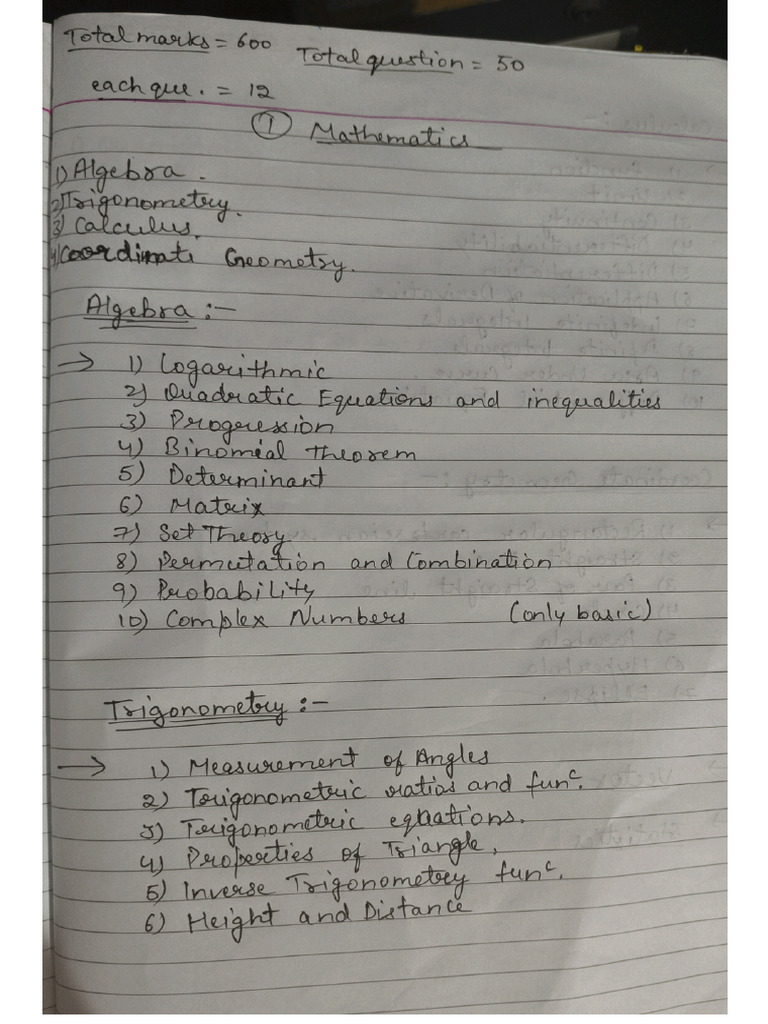 Total marks = 600 Total question = 50
each que. = 12
① Mathematics
1) Algebra.
2) Trigonometry.
3) Calculus.
4) Coordinate Geometry.
Algebra :-
→ 1) Logarithmic
2) Quadratic Equations and inequalities
3) Progression
4) Binomial Theorem
5) Determinant
6) Matrix
7) Set Theory
8) Permutation and Combination
9) Probability
10) Complex Numbers (only basic)
Trigonometry :-
→ 1) Measurement of Angles
2) Trigonometric ratios and funᶜ.
3) Trigonometric equations.
4) Properties of Triangle,
5) Inverse Trigonometry funᶜ.
6) Height and Distance